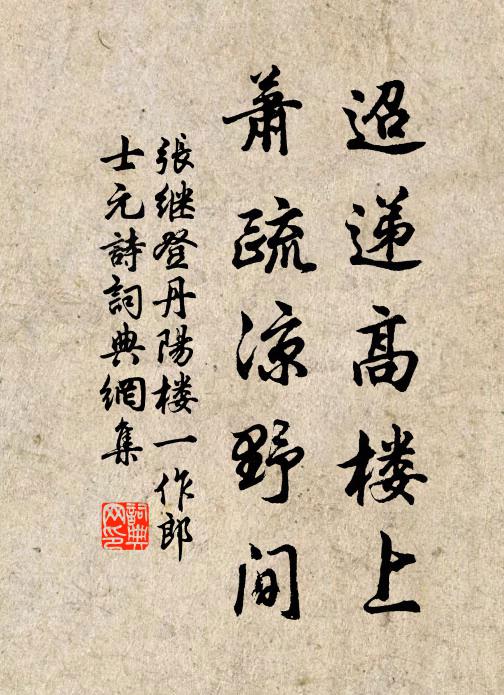 迢递高楼上
萧疏凉野间
張继登丹陽楼一作郎
士元詩詞典網集
詞典
网印